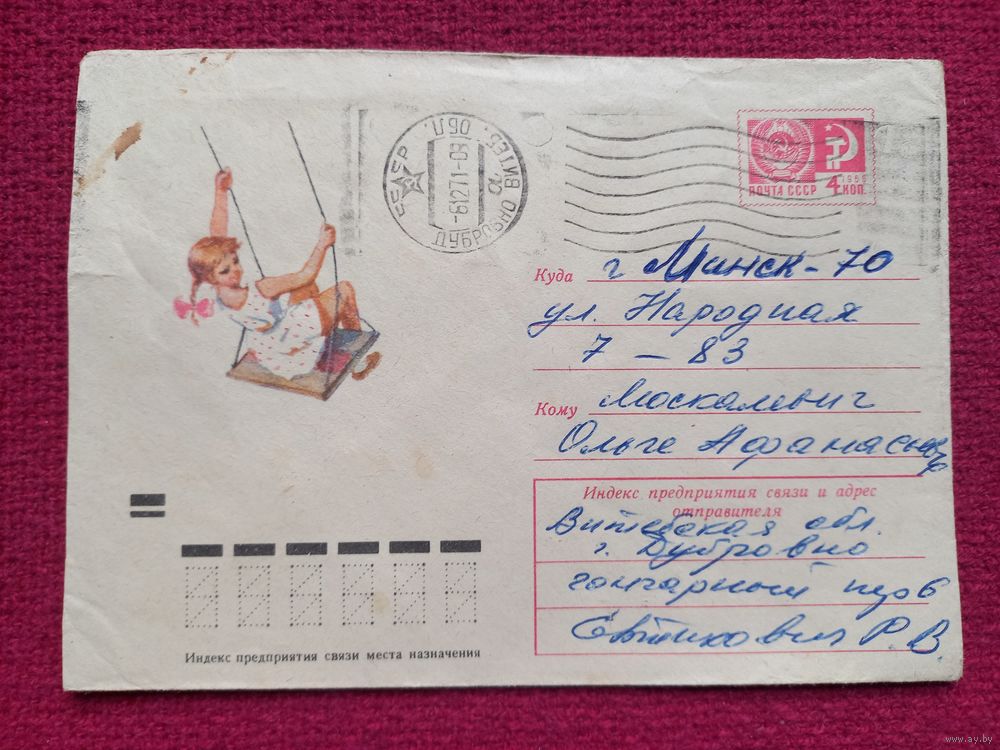 СССР
ВИТЕБ. ОБЛ.
-61271-08
ДУБРОВНО
а
ПОЧТА СССР
1966
4 КОП.
Куда г Минск-70
ул. Народная
7 - 83
Кому Москалевич
Ольге Афанасьевне
Индекс предприятия связи и адрес
отправителя
Витебская обл.
г. Дубровно
гончарный пер 6
Р. В.
Индекс предприятия связи места назначения
www.ay.by